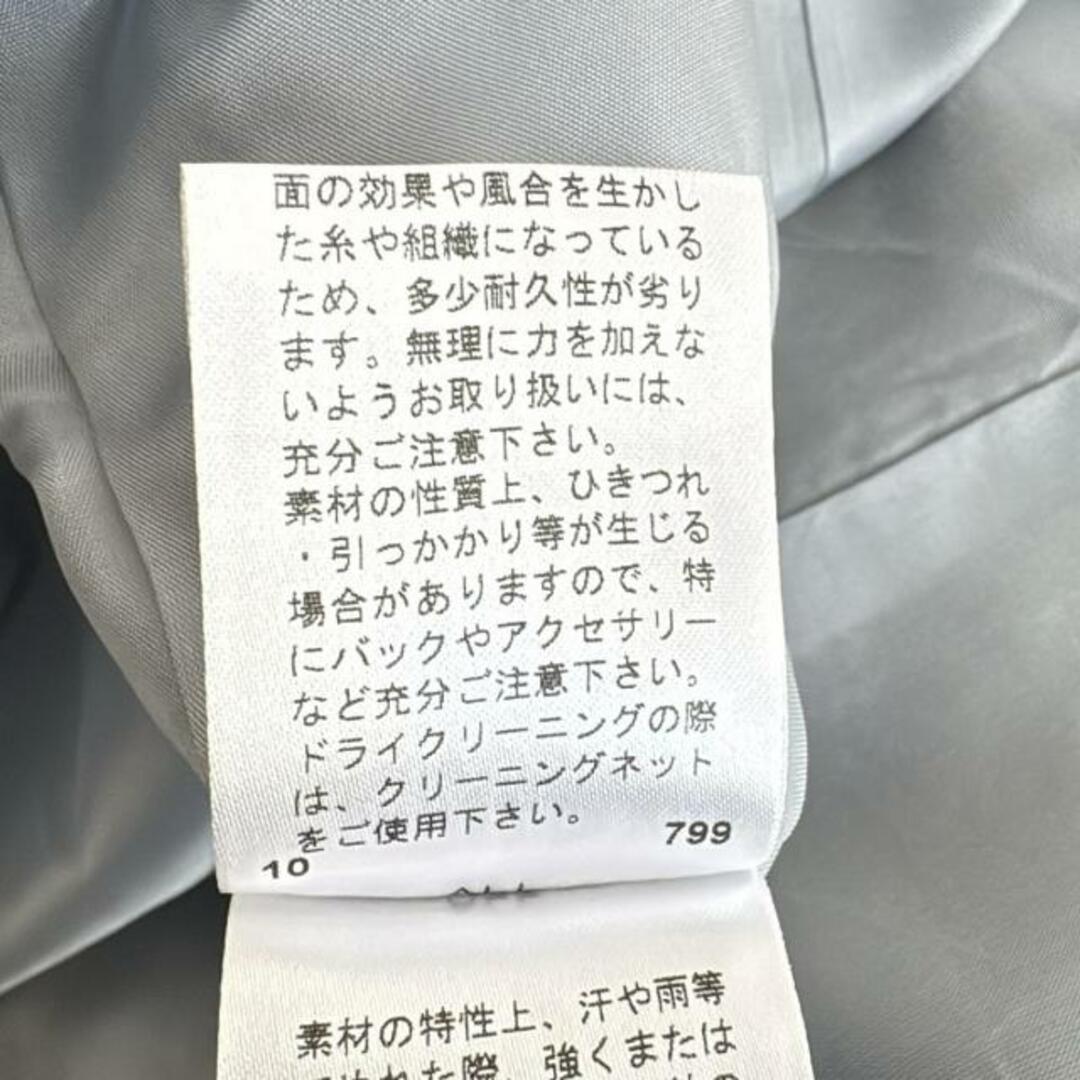 面の効果や風合を生かし
た糸や組織になっている
ため、多少耐久性が劣り
ます。無理に力を加えな
いようお取り扱いには、
充分ご注意下さい。
素材の性質上、ひきつれ
・引っかかり等が生じる
場合がありますので、特
にバックやアクセサリー
など充分ご注意下さい。
ドライクリーニングの際
は、クリーニングネット
をご使用下さい。
10 799
素材の特性上、汗や雨等
れた際、強くまたは